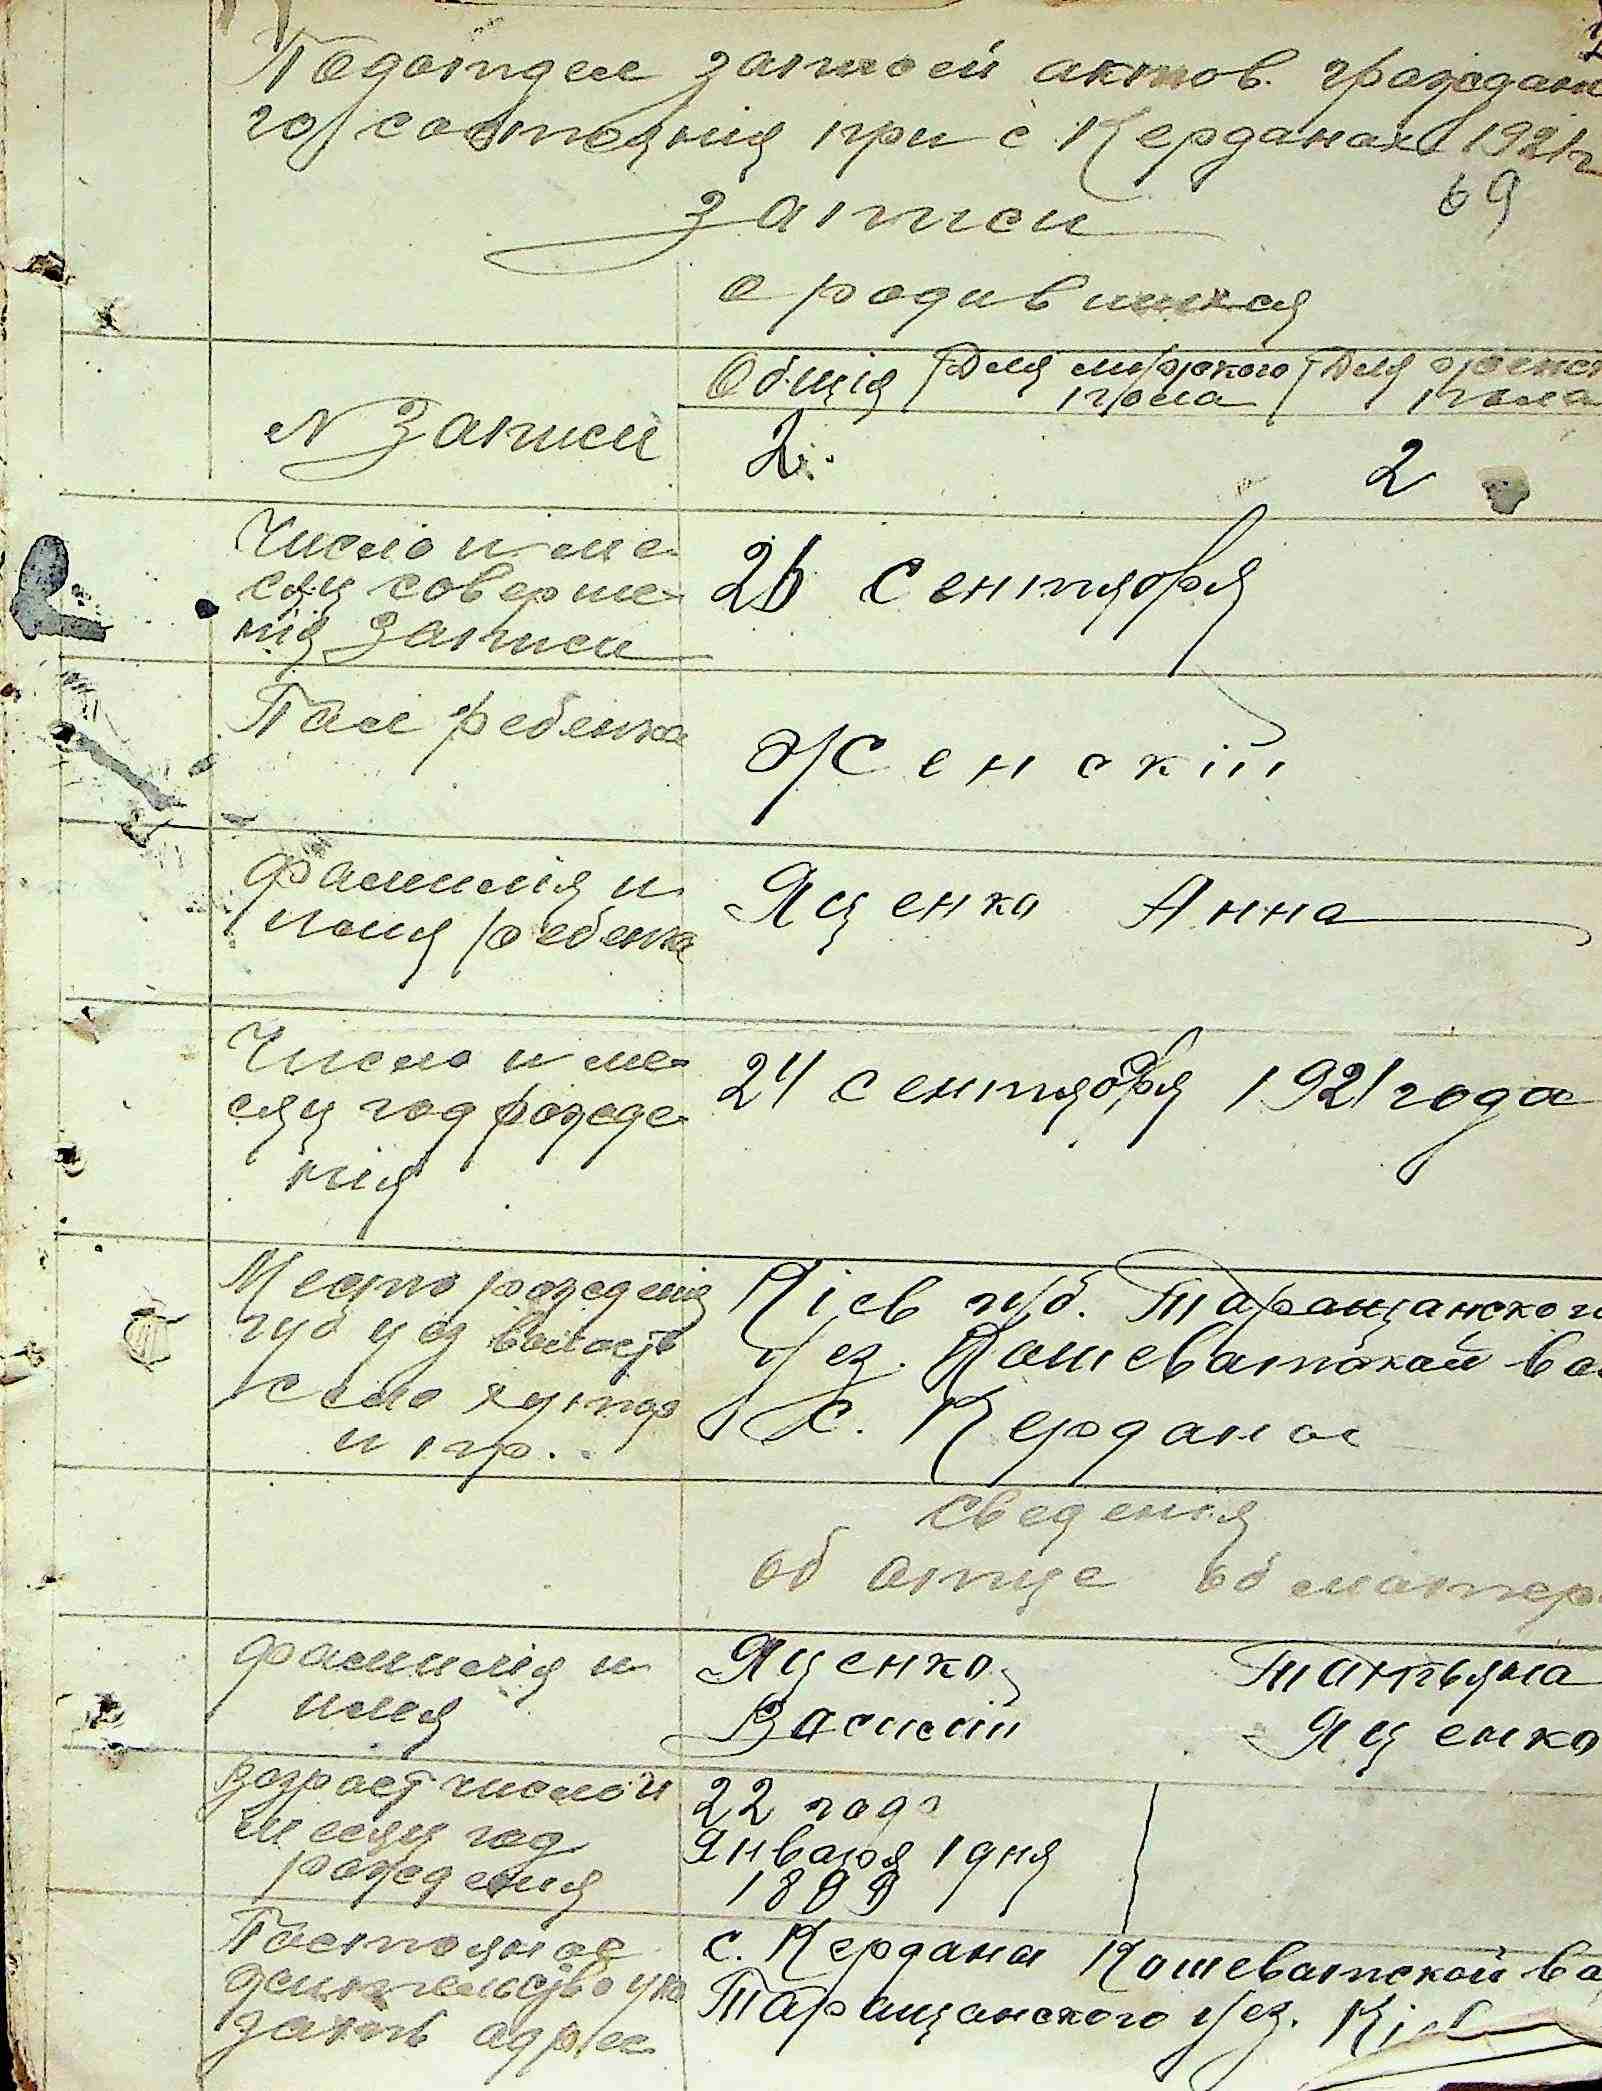 Подотдел записей актов граждан
го состоянія при с Керданах 1921 г
69
Записи
о родившихся
№ Записи
Общія Для мужского пола Для женск пола
2. 2
Число и ме-
сяц соверше-
нія Записи
26 Сентября
Пол ребенка
Женскій
Фамилія и
имя ребенка
Яценко Анна
Число и ме-
сяц год рожде-
нія
24 сентября 1921 года
Место рожденія
губ уез волость
село хутор
и пр.
Кіев губ. Таращанского
уез. Кошеватской во
с. Кердана
Сведенія
об отце об матер
Фамилія и
имя
Яценко
Василій
Татьяна
Яценко
Возраст число и
месяц год
рожденія
22 года
Января 1 дня
1899
Постоянное
жительство ука
зать адрес
с. Кердана Кошеватской во
Таращанского уез. Кі